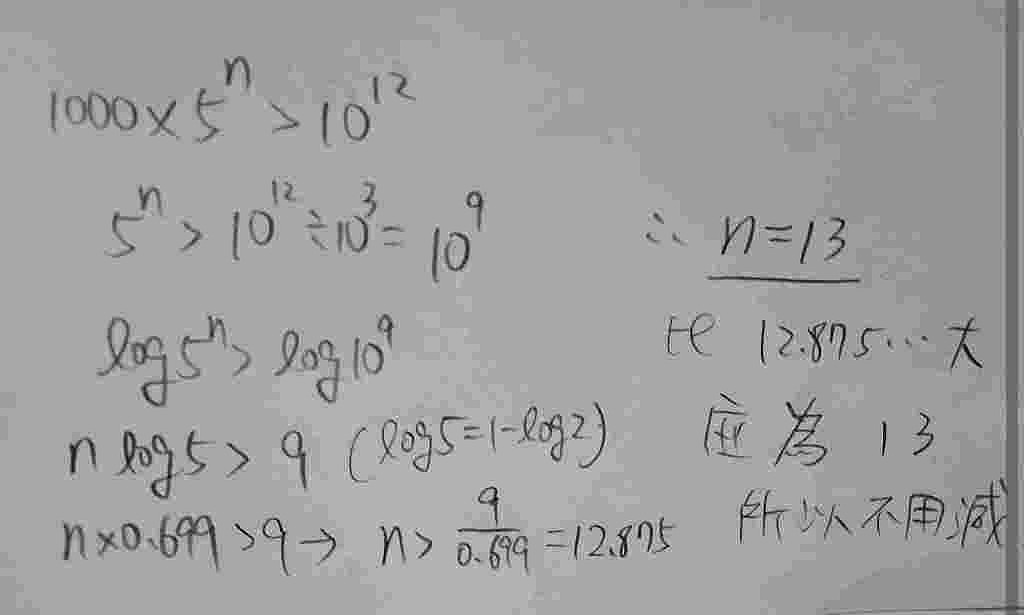 1000×5ⁿ > 10¹²
5ⁿ > 10¹² ÷ 10³ = 10⁹
log5ⁿ > log10⁹
n log5 > 9 (log5=1-log2)
n×0.699 > 9 → n > 9/0.699 = 12.875
∴ n=13
比 12.875... 大
应為 13
所以不用減